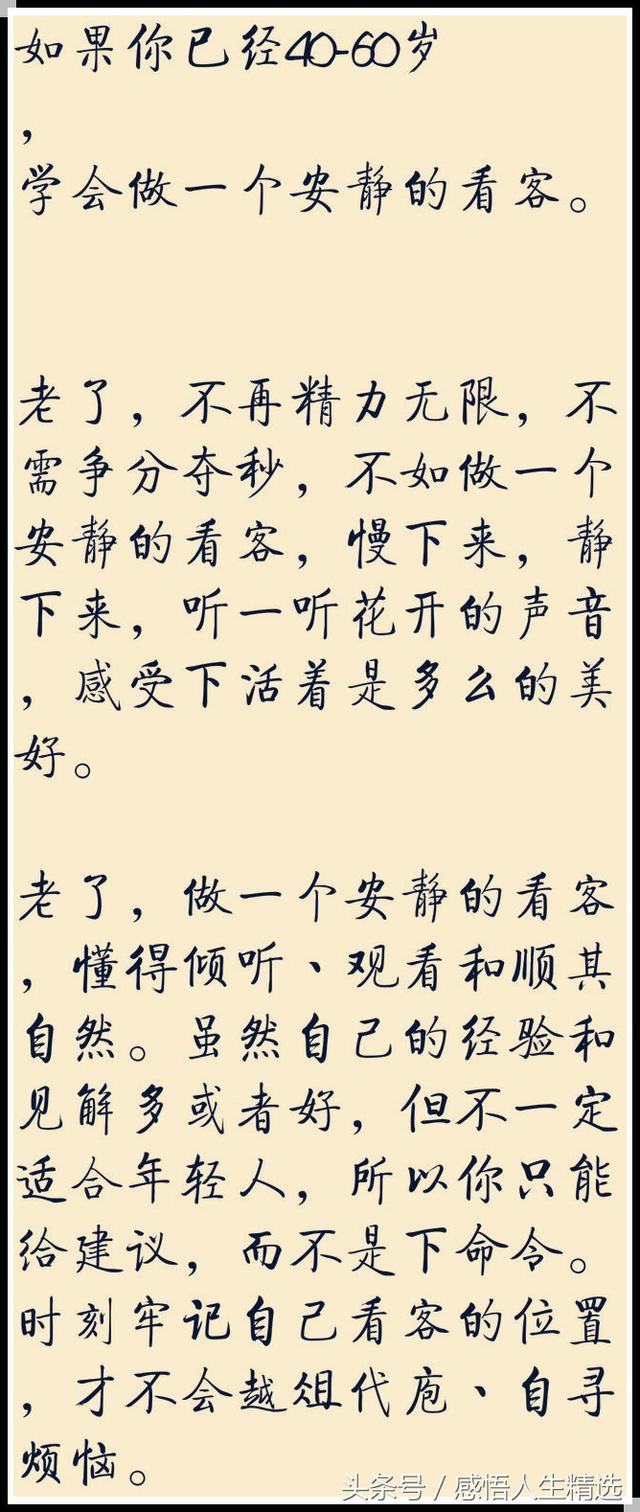 如果你已经40-60岁
，
学会做一个安静的看客。
老了，不再精力无限，不
需争分夺秒，不如做一个
安静的看客，慢下来，静
下来，听一听花开的声音
，感受下活着是多么的美
好。
老了，做一个安静的看客
，懂得倾听、观看和顺其
自然。虽然自己的经验和
见解多或者好，但不一定
适合年轻人，所以你只能
给建议，而不是下命令。
时刻牢记自己看客的位置
，才不会越俎代庖、自寻
烦恼。
头条号 / 感悟人生精选